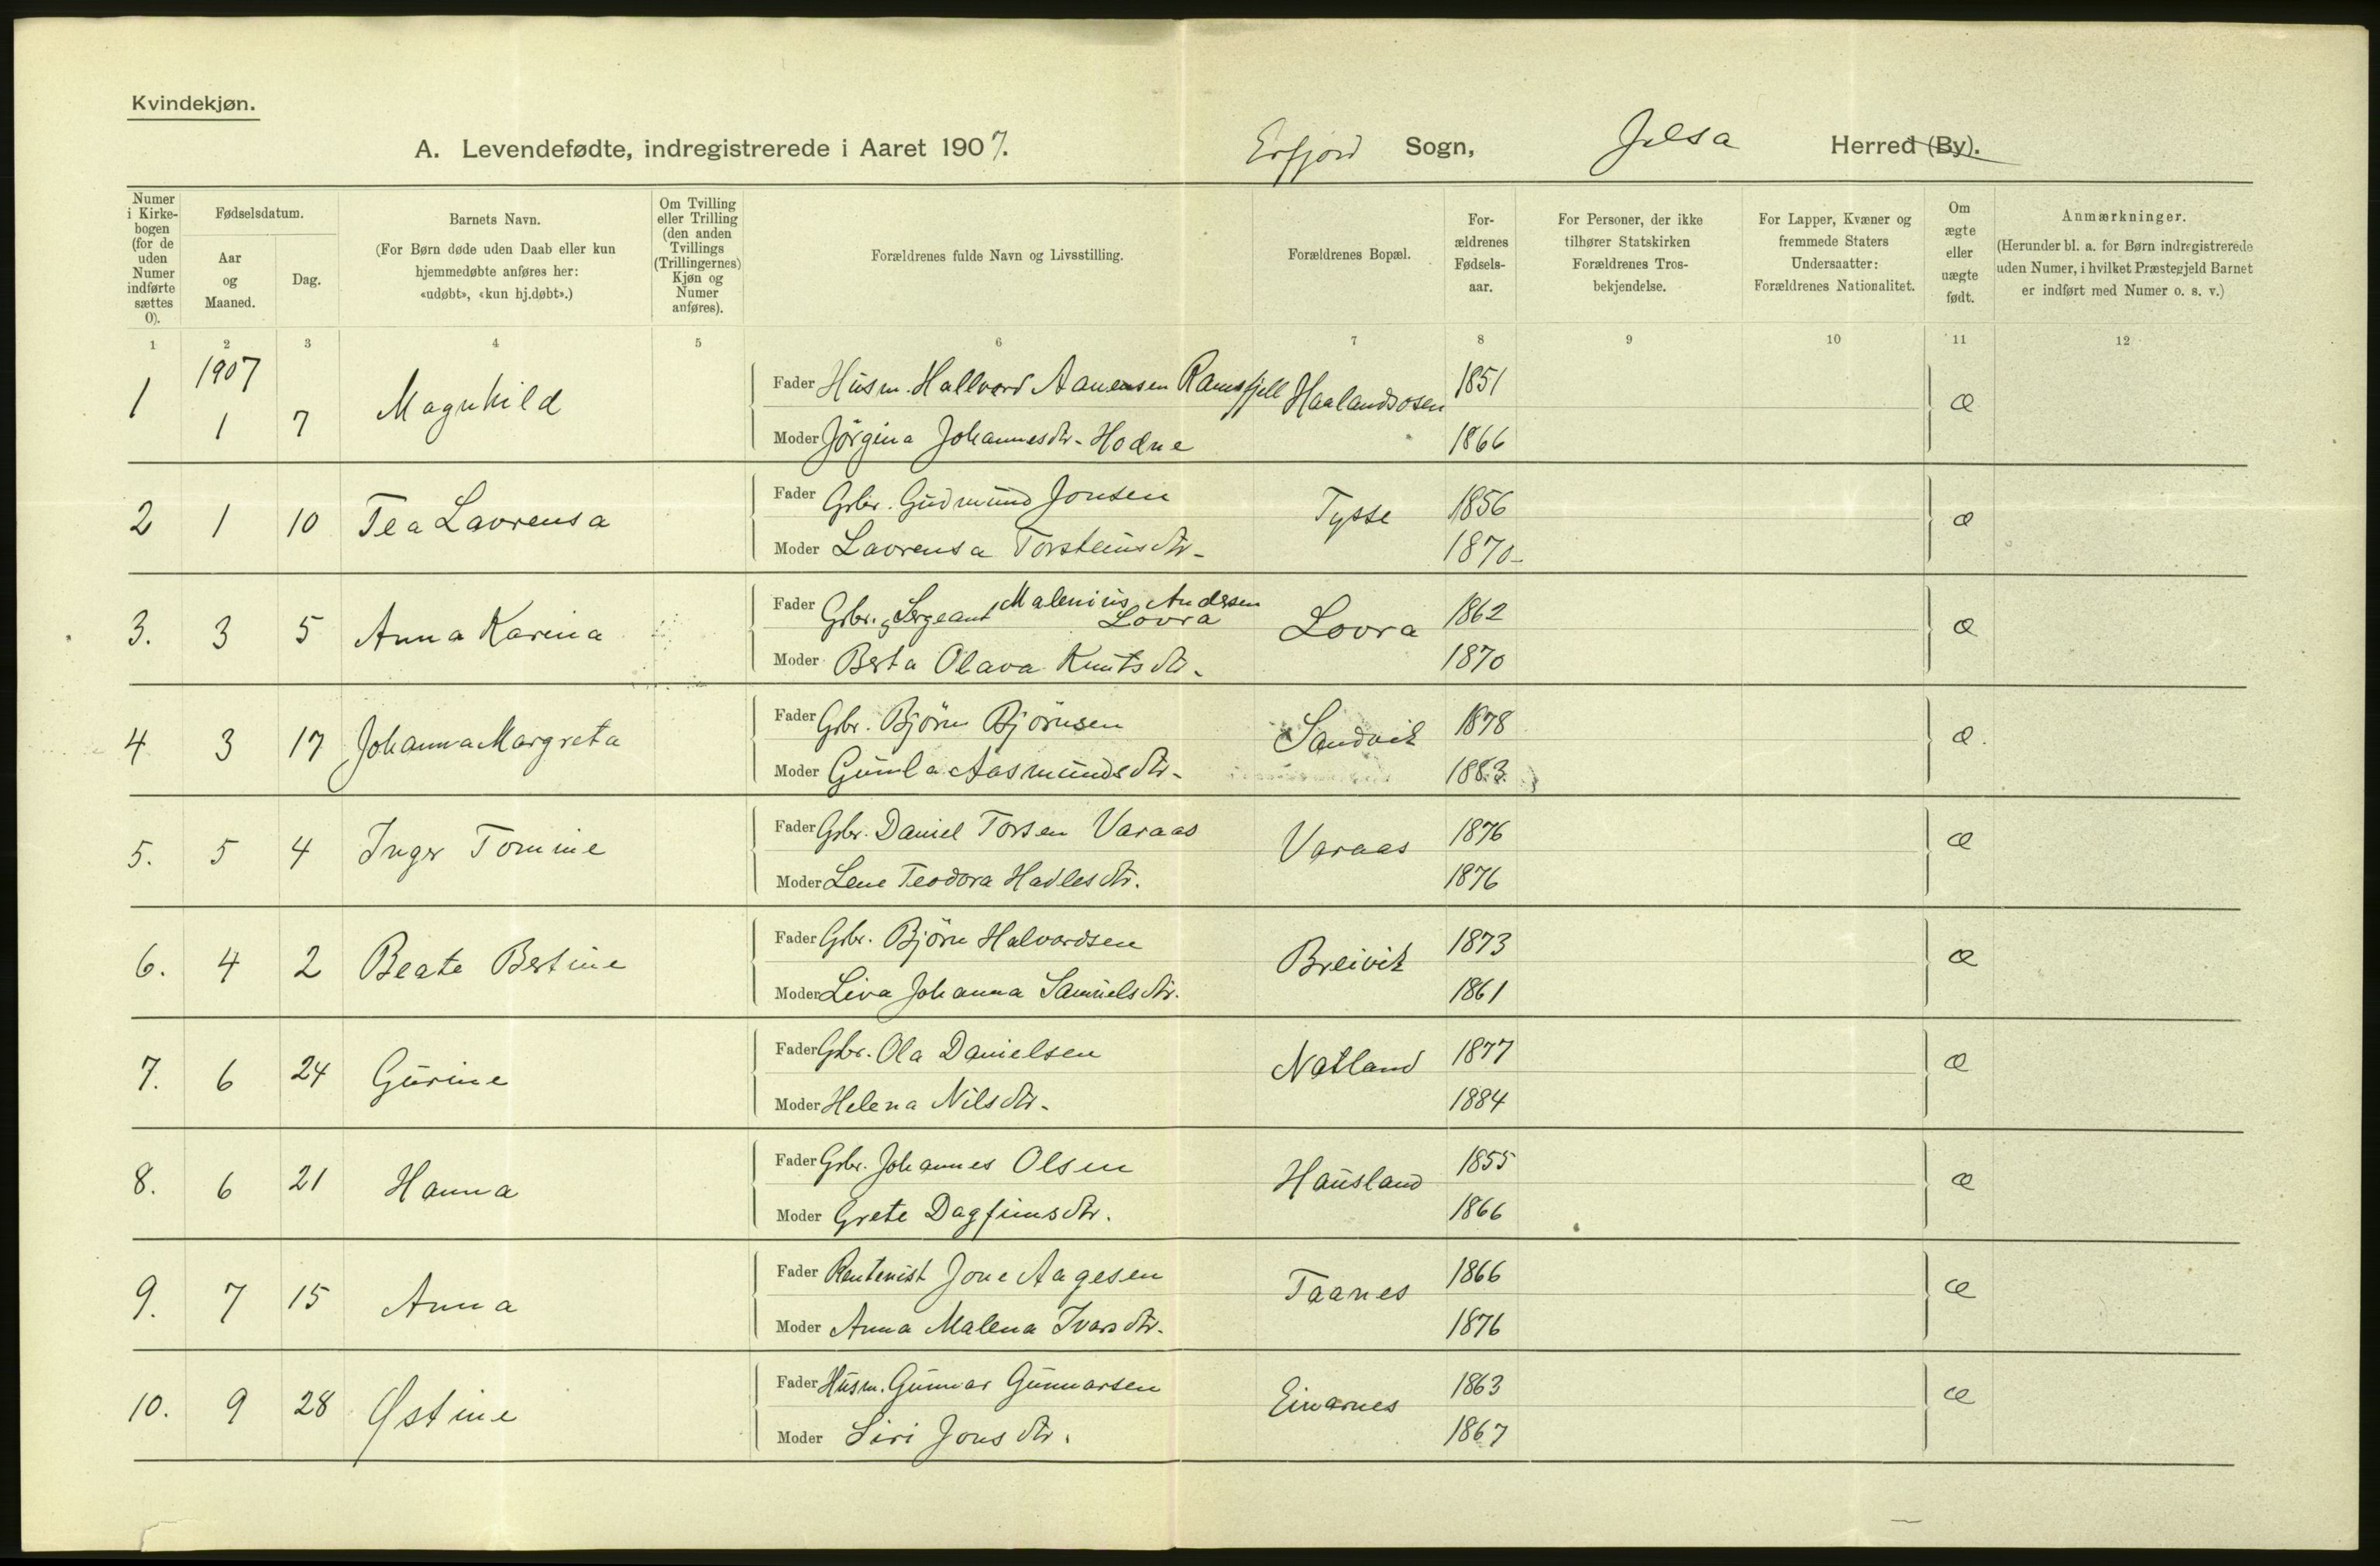 Kvindekjøn.
A. Levendefødte, indregistrerede i Aaret 1907. Erfjord Sogn, Jelsa Herred (By).
Numer i Kirkebogen (for de uden Numer indførte sættes 0).
Fødselsdatum.
Aar og Maaned.
Dag.
Barnets Navn.
(For Børn døde uden Daab eller kun hjemmedøbte anføres her: «udøbt», «kun hj.døbt».)
Om Tvilling eller Trilling (den anden Tvillings (Trillingernes) Kjøn og Numer anføres).
Forældrenes fulde Navn og Livsstilling.
Forældrenes Bopæl.
For-ældrenes Fødsels-aar.
For Personer, der ikke tilhører Statskirken Forældrenes Tros-bekjendelse.
For Lapper, Kvæner og fremmede Staters Undersaatter: Forældrenes Nationalitet.
Om ægte eller uægte født.
Anmærkninger.
(Herunder bl. a. for Børn indregistrerede uden Numer, i hvilket Præstegjeld Barnet er indført med Numer o. s. v.)
1 2 3 4 5 6 7 8 9 10 11 12
1907
1 1 7 Magnhild Fader Husm. Hallvard Aanensen Ramsfjell Haalandsosen 1851 æ
Moder Jörgina Johannesdtr. Hodne 1866
2 1 10 Tea Lavrensa Fader Gbr. Gudmund Jonsen Tysse 1856 æ
Moder Lavrensa Torsteinsdtr. 1870
3. 3 5 Anna Karina Fader Gbr. og Sergeant Malenius Andersen Lovra Lovra 1862 æ
Moder Berta Olava Knutsdtr. 1870
4 3 17 Johanna Margreta Fader Gbr. Björn Björnsen Sandvik 1878 æ.
Moder Gunla Aasmundsdtr. 1883
5. 5 4 Inger Tomine Fader Gbr. Daniel Torsen Varaas Varaas 1876 æ
Moder Lene Teodora Hadlesdtr. 1876
6. 4 2 Beate Bertine Fader Gbr. Björn Halvardsen Breivik 1873 æ
Moder Liva Johanna Samuelsdtr. 1861
7. 6 24 Gurine Fader Gbr. Ola Danielsen Natland 1877 æ
Moder Helena Nilsdtr. 1884
8. 6 21 Hanna Fader Gbr. Johannes Olsen Hausland 1855 æ
Moder Grete Dagfinnsdtr. 1866
9. 7 15 Anna Fader Rentenist Jone Aagesen Taanes 1866 æ
Moder Anna Malena Ivarsdtr. 1876
10. 9 28 Østine Fader Husm. Gunnar Gunnarsen Einarnes 1863 æ
Moder Siri Jonsdtr. 1867